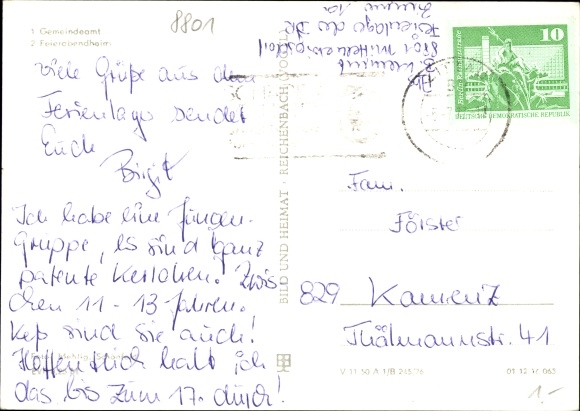 8801
1 Gemeindeamt
2 Feierabendheim
Viele Grüße aus dem
Ferienlager sendet
Euch
Birgit
Ich habe eine Jungen-
gruppe, es sind ganz
patente Kerlchen! Zwis
chen 11 - 13 Jahren.
Kep sind sie auch!
Hoffentlich halt ich
das bis zum 17. durch!
BILD UND HEIMAT · REICHENBACH (VOGTL)
Ferienlager der DR
8801 Mittelherwigsdorf
10
DEUTSCHE DEMOKRATISCHE REPUBLIK
Fam.
Förster
829 Kamenz
Thälmannstr. 41
V 11 50 A 1/B 01 12 17 063
1.-